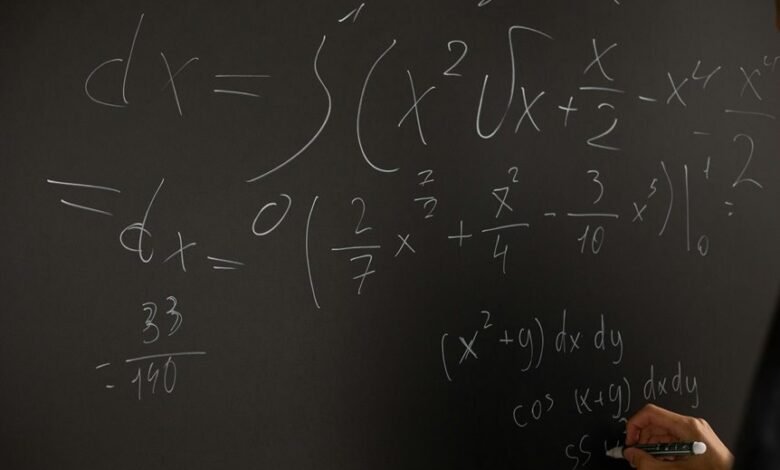 dx = ∫₀¹ (x² √x + x/2 - x⁴ - x⁴/2
= dx = (2/7 x^(7/2) + x²/4 - 3/10 x⁵)|₀¹ =
= 33/140
(x² + y) dx dy
cos (x+y) dxdy